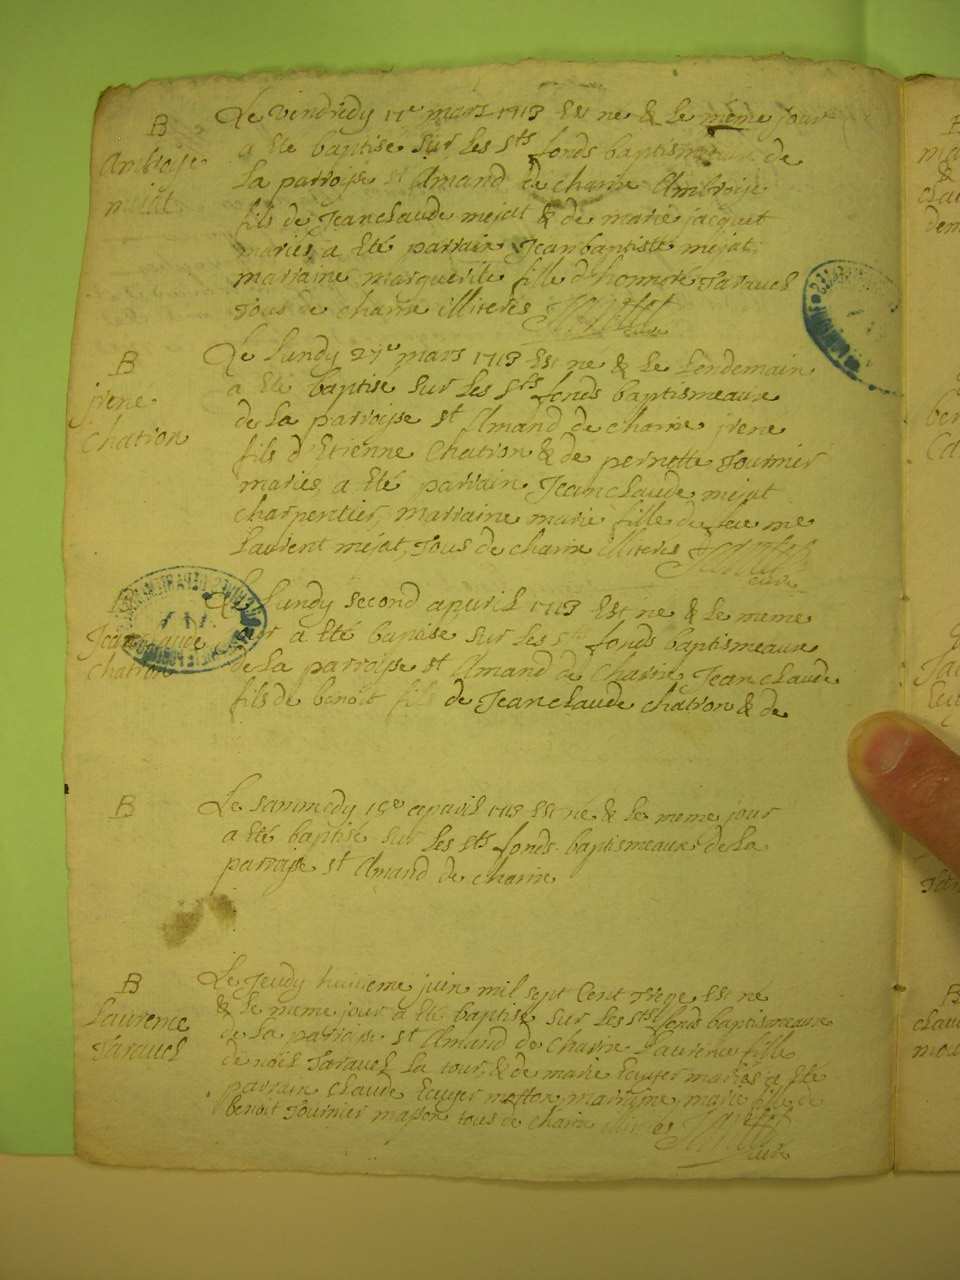 B
Ambroise
mejat
Le Vendredy 17e mars 1713 Est ne & Le même jour
a Ete baptise sur Les Sts fonds baptismeaux de
La parroisse st Amand de charne Ambroise
fils de Jeanclaude mejat & de marie jacquet
mariés, a Eté parrain Jeanbaptiste mejat
marraine marguerite fille d'honnoré Taravel
Tous de charne illiterés
curé
B
jrene
Chatron
Le Lundy 27e mars 1713 Est ne & Le Lendemain
a Eté baptise sur Les Sts fonds baptismeaux
de La parroisse st Amand de charne jrene
fils d'Etienne Chatron & de pernette Tournier
mariés, a Eté parrain Jeanclaude mejat
charpentier, marraine marie fille de feu me
Laurent mejat, Tous de charne illiteres
curé
B
Jeanclaude
chatron
Le Lundy second apuril 1713 Est ne & Le meme
jour a Eté batise sur Les sts fonds baptismeaux
de La parroisse st Amand de Charne Jeanclaude
fils de benoit fils de Jeanclaude chatron & de
B
Le sammedy 15e apuril 1713 Est né & Le meme jour
a Eté baptisé sur Les sts fonds baptismeaux de La
parroisse st Amand de charne
B
Laurence
Taravel
Le Jeudy huitieme juin mil sept Cent Treze Est ne
& Le meme jour a Eté baptise sur Les sts fonds baptismeaux
de La parroise st Amand de Charne Laurence fille
de noël Taravel La tour & de marie Ecuyer mariés a Eté
parrain Claude Ecuyer masson marraine marie fille de
benoit Tournier masson tous de charne illiteres
curé